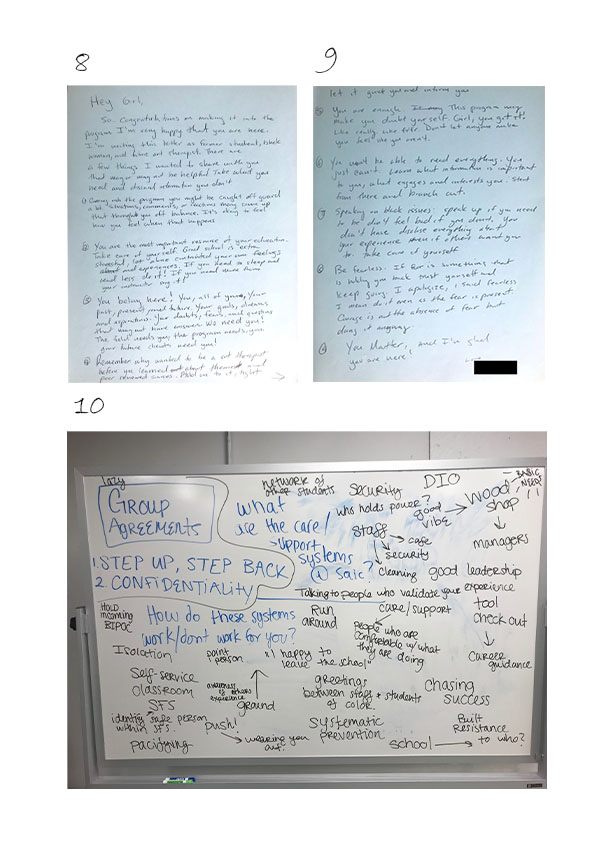 8
Hey Girl,
So. Congratulations on making it into the
program I'm very happy that you are here.
I'm writing this letter as former student, black
woman, and future art therapist. There are
a few things I wanted to share with you
that may or may not be helpful. Take what you
need and discard information you don't
① Coming into the program you might be caught off guard
a lot. Situations, comments, or reactions may come up
that throw you off balance. It's okay to feel
how you feel when that happens
② You are the most important resource of your education.
Take care of yourself. Grad school is extra
stressful, let alone your own feelings
and experiences. If you need to sleep and
read less, do it! If you need more from
your instructor say it!
③ You belong here! You, all of you, your
past, present, and future. Your goals, dreams
and aspirations. Your doubts, fears, and questions
that may not have answers. We need you!
The field needs you, the program needs you,
your future clients need you!
④ Remember why wanted to be a art therapist
before you learned about
peer reviewed sources. Hold on to it, tight
9
let it guide you and inform you
⑤ You are enough. This program may
make you doubt yourself. Girl, you got it!
Like really. Don't let anyone make
you feel like you aren't.
⑥ You won't be able to read everything. You
just can't. Learn what information is important
to you, what engages and interests you. Start
from there and branch out.
⑦ Speaking on black issues. Speak up if you need
to but don't feel bad if you don't. You
don't have disclose everything about
your experience even if others want you
to. Take care of yourself
⑧ Be fearless. If fear is something that
is holding you back trust yourself and
keep going. I apologize, I said fearless
I mean do it even as the fear is present.
Courage is not the absence of fear but
doing it anyway.
⑨ You Matter, and I'm glad
you are here,
10
lazy
GROUP
AGREEMENTS
1. STEP UP, STEP BACK
2. CONFIDENTIALITY
network of
other students
Security
DIO
what
are the care/
support
systems
@ saic?
who holds power?
good
vibe
wood
shop
- BASIC
NEED
staff
cafe
security
cleaning
managers
good leadership
Talking to people who validate your experience
Hold
incoming
BIPOC
How do these systems
work/dont work for you?
Run
around
care/support
people who are
comfortable w/ what
they are doing
tool
check out
career
guidance
Isolation
point
person
"I happy to
leave the school"
Self-service
classroom
SFS
awareness of others
experience
ground
greetings
between staff + students
of color.
chasing
success
identify safe person
within SFS.
push!
wearing you
out.
systematic
prevention
Built
Resistance
to who?
pacifying
school